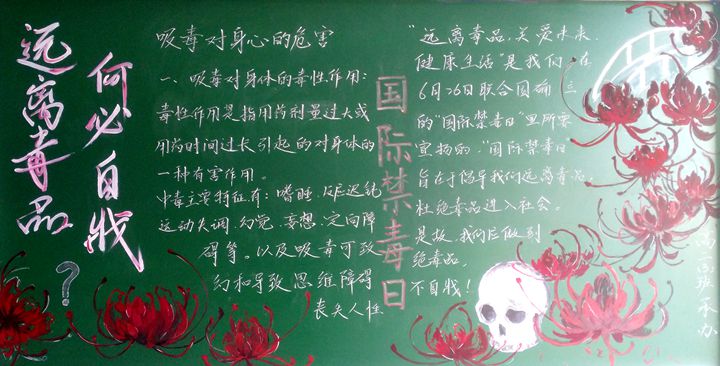 远离毒品
何必自戕
?
吸毒对身心的危害
一、吸毒对身体的毒性作用：
毒性作用是指用药剂量过大或
用药时间过长引起的对身体的
一种有害作用。
中毒主要特征有：嗜睡、反应迟钝
运动失调、幻觉、妄想、定向障
碍等。以及吸毒可致
幻和导致思维障碍
丧失人性
国际禁毒日
"远离毒品，关爱未来，
健康生活"是我们在
6月26日联合国确
的"国际禁毒日"里所要
宣扬的。"国际禁毒日
旨在于倡导我们远离毒品，
杜绝毒品进入社会。
是故，我们应做到
绝毒品，
不自戕！
高班承办